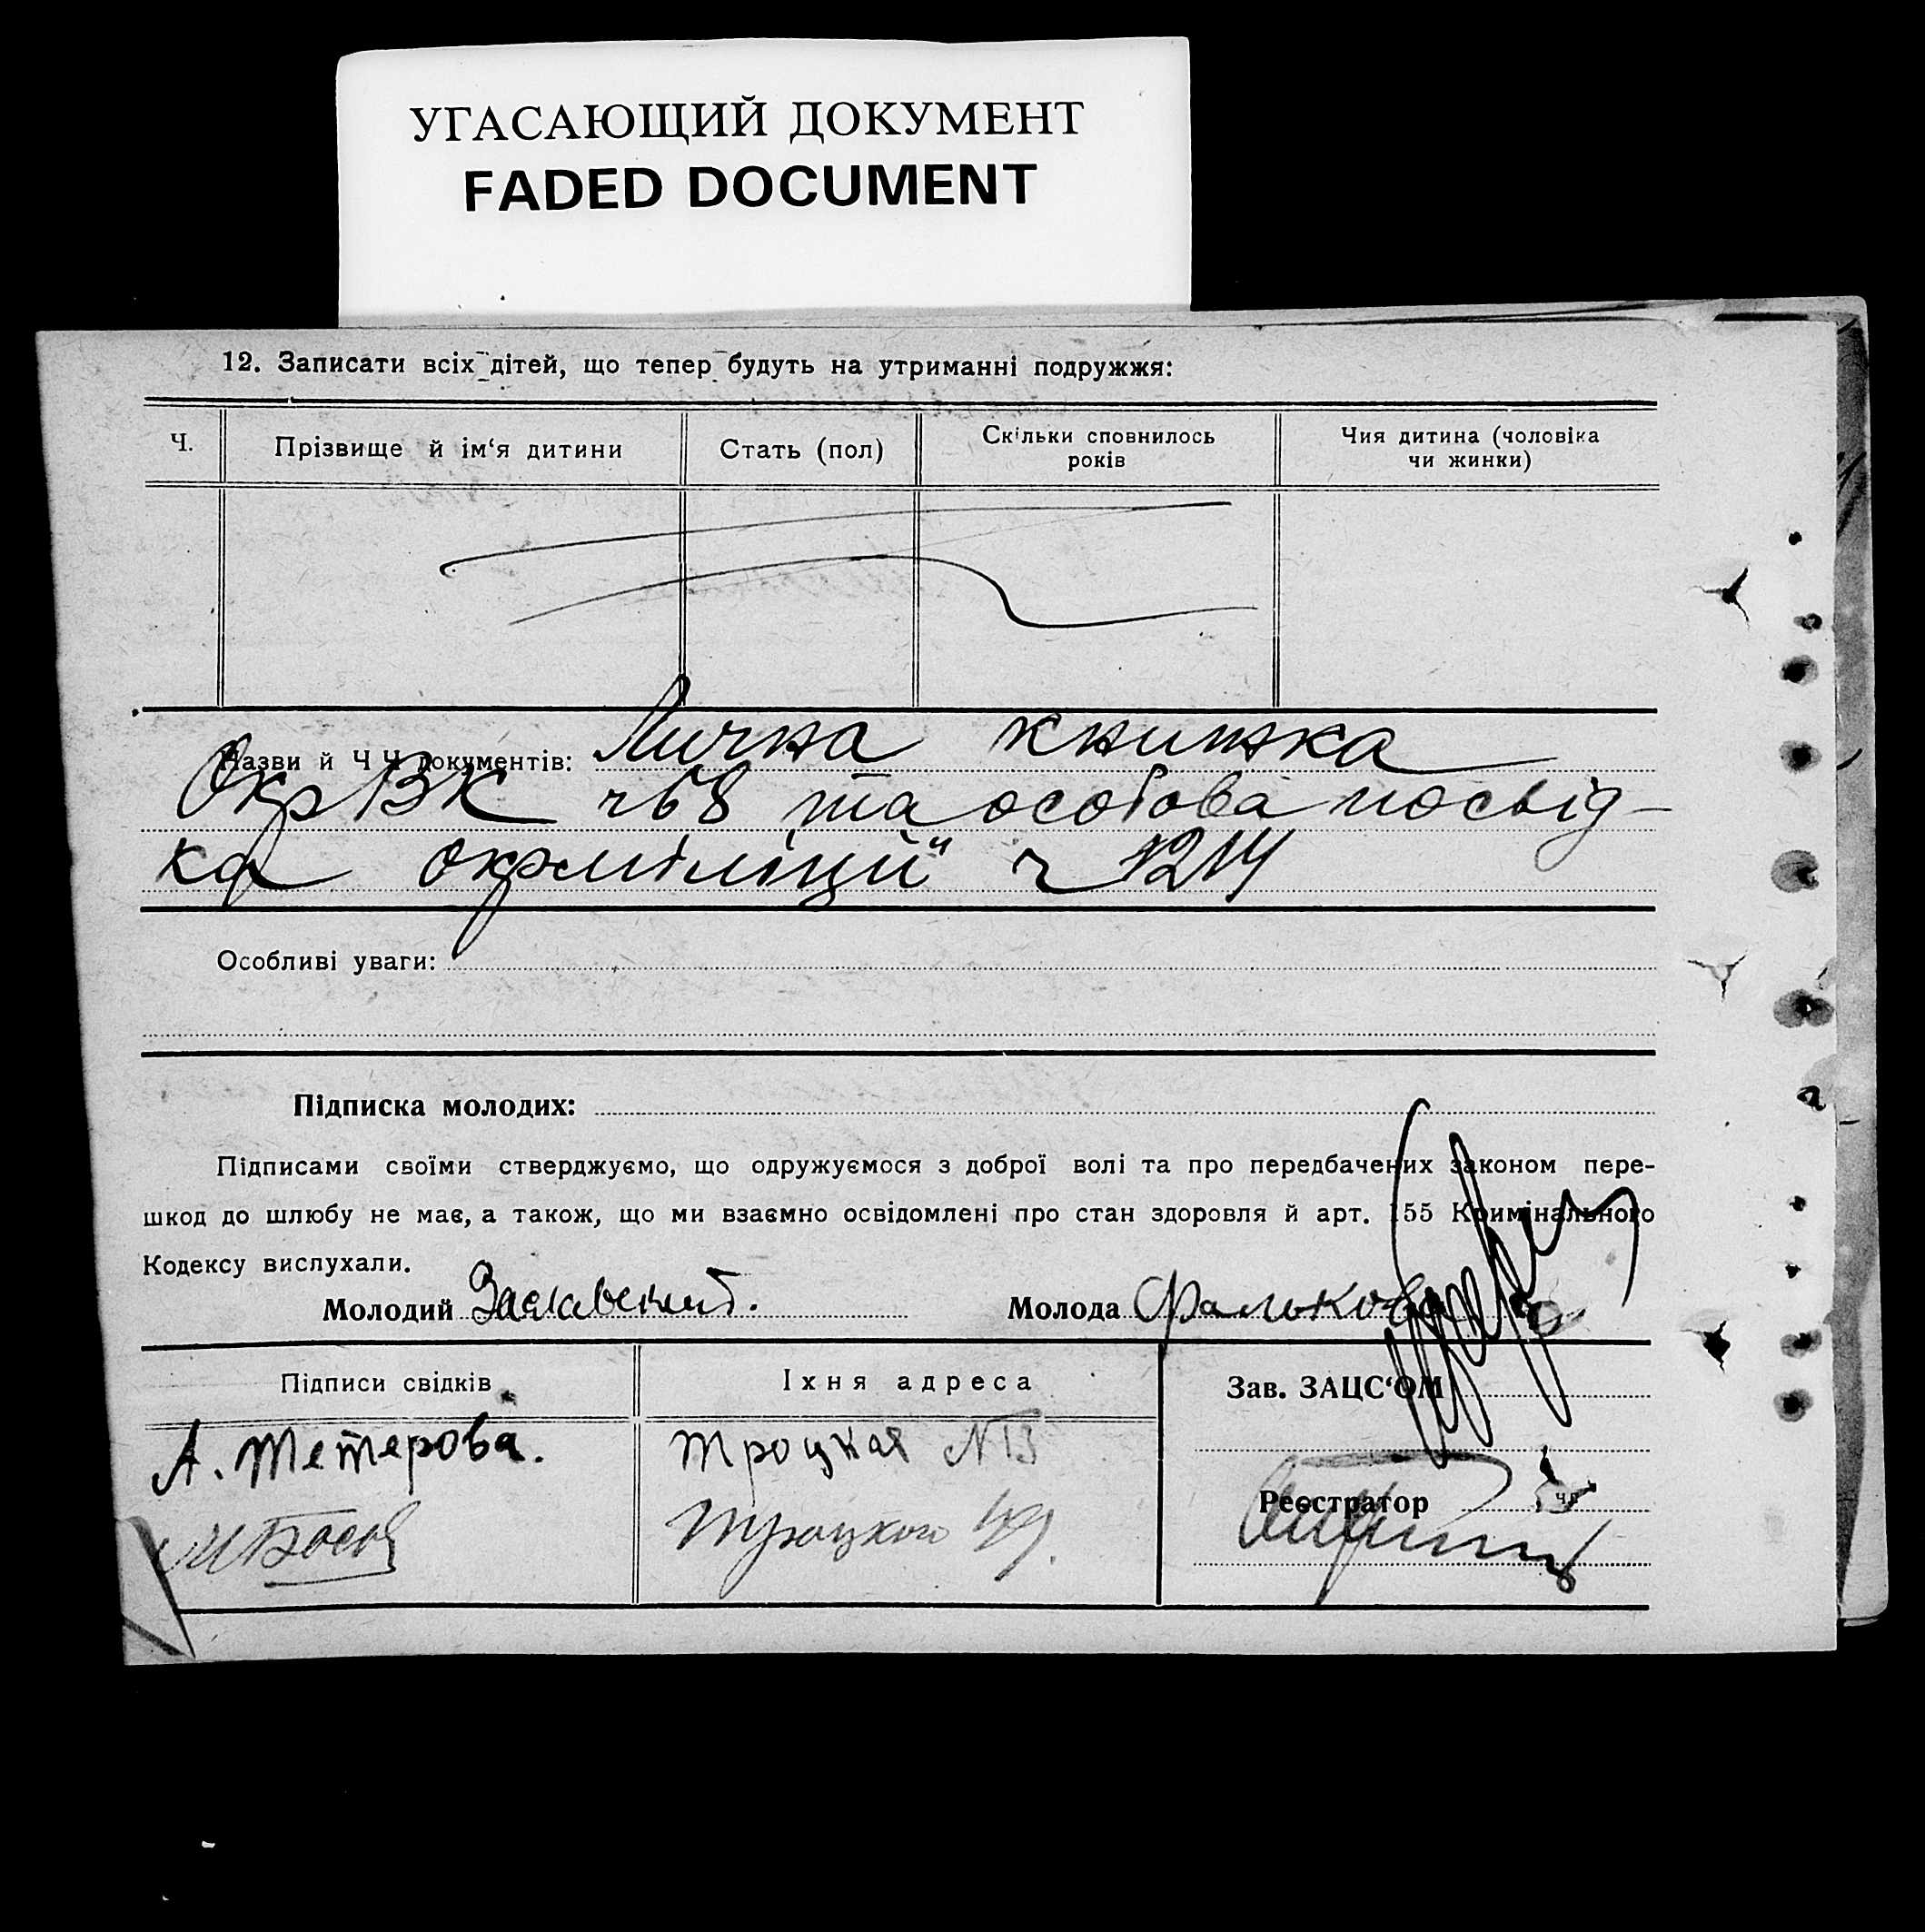 УГАСАЮЩИЙ ДОКУМЕНТ
FADED DOCUMENT
12. Записати всіх дітей, що тепер будуть на утриманні подружжя:
Ч.
Прізвище й ім‘я дитини
Стать (пол)
Скільки сповнилось
років
Чия дитина (чоловіка
чи жинки)
Назви й Ч Ч документів: Лична книжка
ОкрВК ч 68 та особова посвід-
ка окрміліції ч 1214
Особливі уваги:
Підписка молодих:
Підписами своїми стверджуємо, що одружуємося з доброї волі та про передбачених законом пере-
шкод до шлюбу не має, а також, що ми взаємно освідомлені про стан здоровля й арт. 155 Кримінального
Кодексу вислухали.
Молодий Заславский.
Молода
Підписи свідків
Їхня адреса
Зав. ЗАЦС‘ОМ
А. Тетерова.
Троцкая N 13
Реєстратор
Троцкой 49.